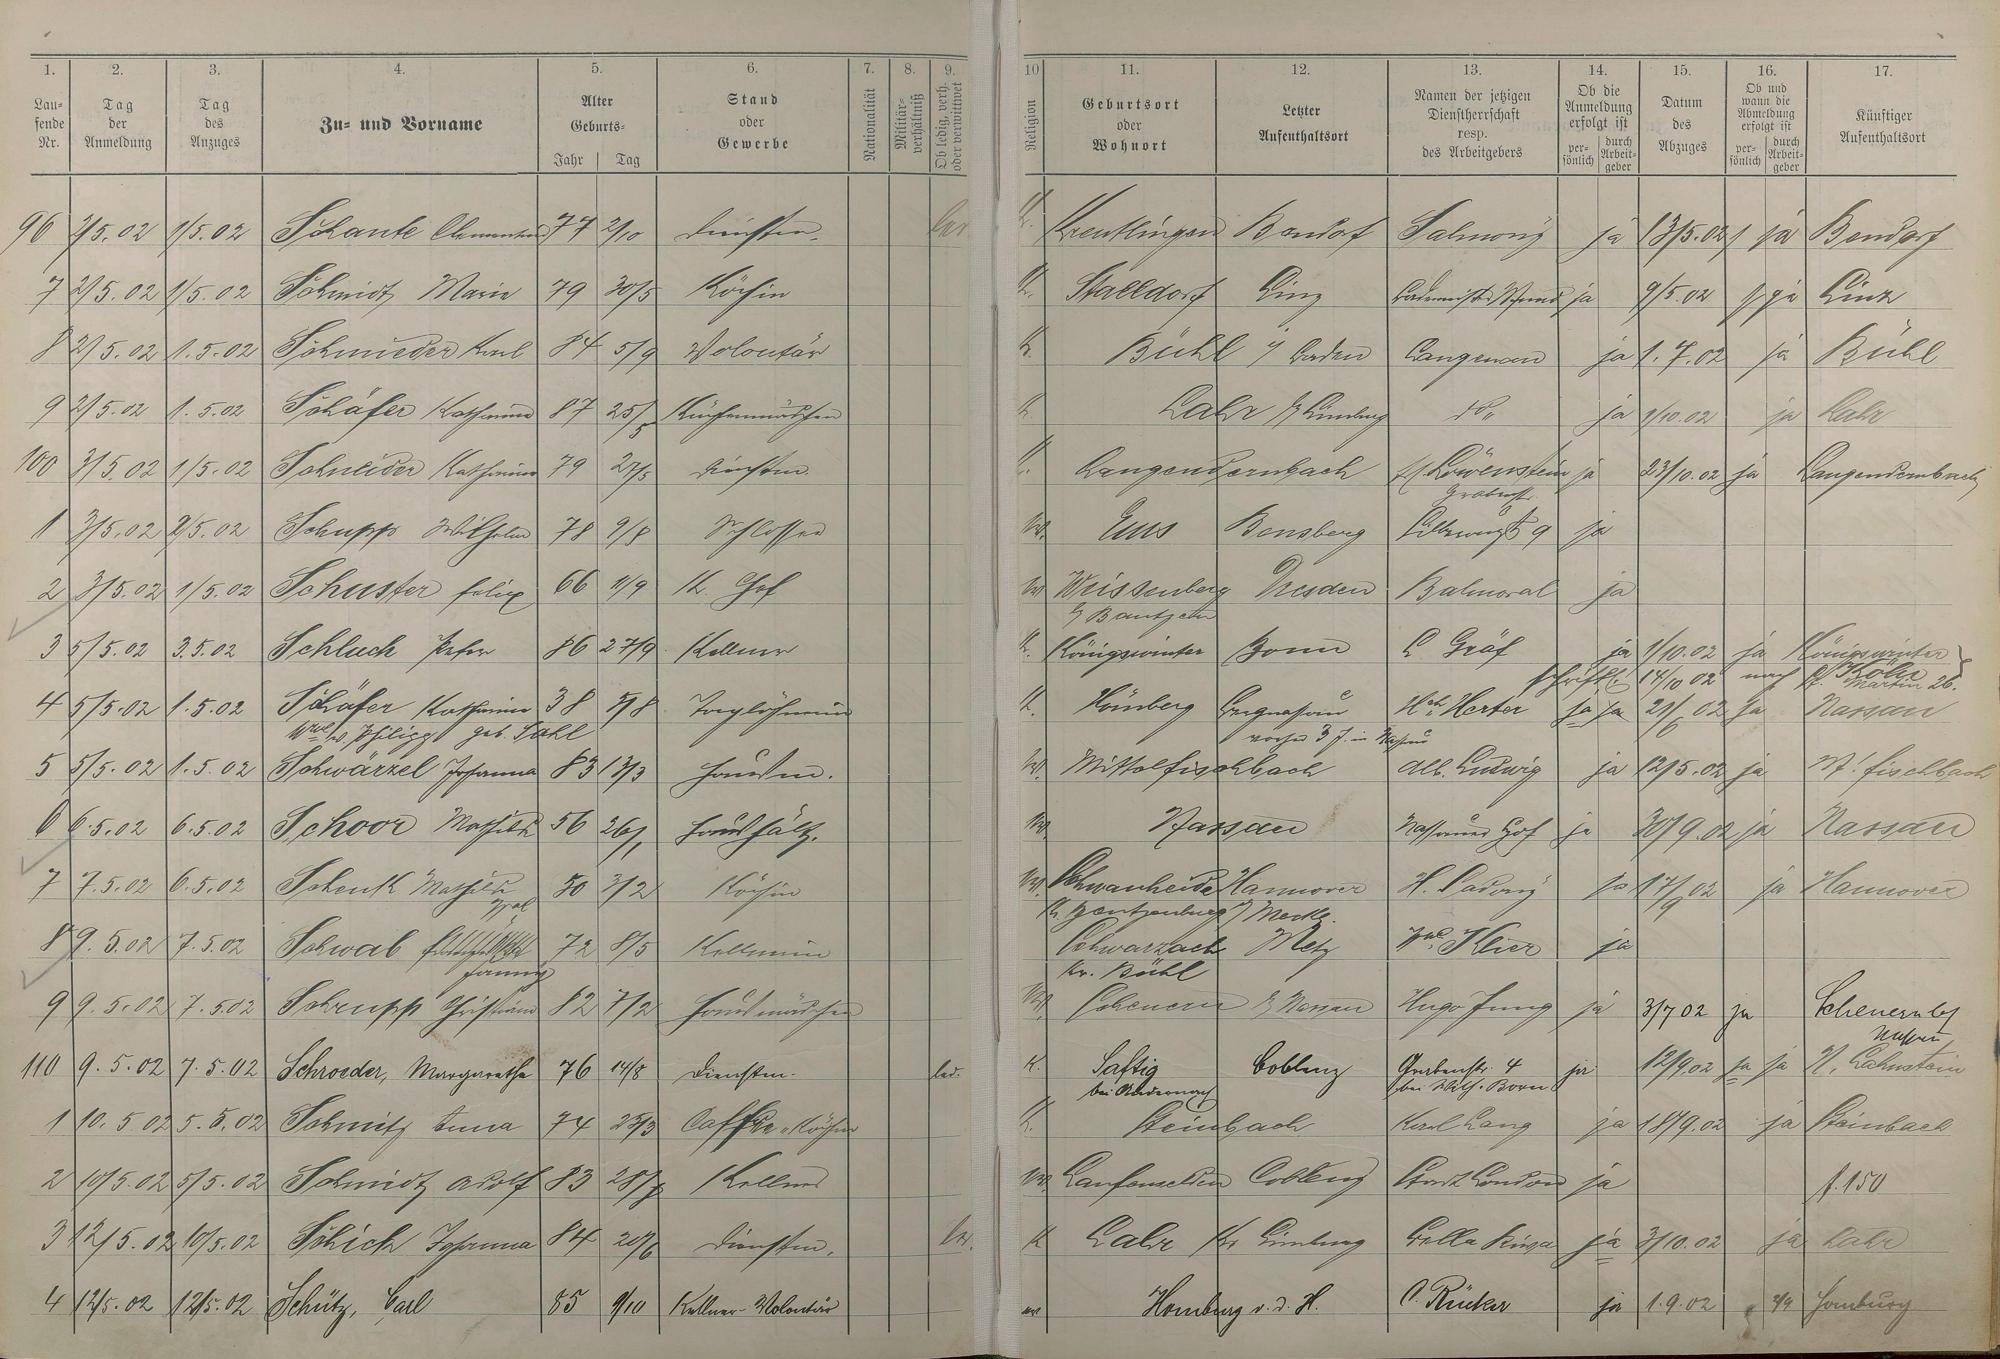 1. 2. 3. 4. 5. 6. 7. 8. 9. 10 11. 12. 13. 14. 15. 16. 17.
Lau-
fende
Nr.
Tag
der
Anmeldung
Tag
des
Anzuges
Zu- und Vorname
Alter
Geburts-
Jahr Tag
Stand
oder
Gewerbe
Nationalität
Militär-
verhältniß
Ob ledig, verh.
oder verwittwet
Religion
Geburtsort
oder
Wohnort
Letzter
Aufenthaltsort
Namen der jetzigen
Dienstherrschaft
resp.
des Arbeitgebers
Ob die
Anmeldung
erfolgt ist
per-
sönlich
durch
Arbeit-
geber
Datum
des
Abzuges
Ob und
wann die
Abmeldung
erfolgt ist
per-
sönlich
durch
Arbeit-
geber
Künftiger
Aufenthaltsort
96 2/5.02 1/5.02 77 2/10 Dienstm. K. Bendorf ja 13/5.02 ja Bendorf
7 2/5.02 1/5.02 Schmidt Marie 79 30/5 Köchin K. Stalldorf Linz ja 9/5.02 ja Linz
8 2/5.02 1.5.02 Schmieder Karl 84 5/9 Volontär K. Bühl i/ Baden Langemann ja 1.7.02 ja Bühl
9 2/5.02 1.5.02 Schäfer Katharina 87 25/5 Küchenmädchen K. Lahr b/ Limburg do. ja 1/10.02 ja Lahr
100 3/5.02 1/5.02 Schneider Katharina 79 27/5 Dienstm. K. Langendernbach Löwenstein ja 23/10.02 ja Langendernbach
Grabenstr.
1 3/5.02 2/5.02 Schupp Wilhelm 78 9/8 Schlosser ev. Ems Bensberg 9 ja
2 3/5.02 1/5.02 Schuster Felix 66 11/9 K. Chef ev. Weissenberg Dresden Balmoral ja
b/ Bautzen
3 5/5.02 3.5.02 Schluch Peter 86 27/9 Kellner K. Königswinter Bonn C. Gräf ja 1/10.02 ja Königswinter
schriftl. 14/10 02 nach Köln
Martin 26.
4 5/5.02 1.5.02 Schäfer Katharina 38 5/8 Taglöhnerin K. Hömberg Bergnassau Hch. Herter ja ja 21/6 02 ja Nassau
Wwe. v. Philipp geb. Sahl vorher 3 J. in Nassau
5 5/5.02 1.5.02 Schwärzel Johanna 83 13/3 Hausm. ev. Mittelfischbach Alb. Ludwig ja 12/5.02 ja M. fischbach
6 6.5.02 6.5.02 Schoor Mathilde 56 26/1 Haushält. ev. Nassau Nassauer Hof ja 30/9.02 ja Nassau
7 7.5.02 6.5.02 Schenk Mathilde 50 3/2 Köchin ev. Schwanheide Hannover ja 17/9 02 ja Hannover
i/ Meckl.
8 9.5.02 7.5.02 Schwab 72 8/5 Kellnerin Schwarzach Metz Wwe. Klier ja
Fanny Kr. Bühl
9 9.5.02 7.5.02 Schrupp Christiane 82 7/2 Hausmädchen ev. Scheuern b/ Nassau Hugo Jung ja 3/7 02 ja Scheuern b/
Nassau
110 9.5.02 7.5.02 Schroeder, Margarethe 76 14/8 Dienstm. led. K. Saftig Coblenz Grabenstr. 4 ja 12/9.02 ja ja N. Lahnstein
bei Andernach bei Wilh. Born
1 10.5.02 5.5.02 Schmitz Anna 74 25/3 Caffee-Köchin K. Steinbach Karl Lang ja 18/9.02 ja Steinbach
2 10/5.02 5/5.02 Schmidt Adolf 83 28/7 Kellner ev. Laufenselden Coblenz Stadt London ja f. 150
3 12/5.02 10/5.02 Schick Johanna 84 20/6 Dienstm. led. K Lahr Kr Limburg Bella Riva ja 3/10.02 ja Lahr
4 12/5.02 12/5.02 Schütz, Carl 85 9/10 Kellner-Volontär ev Homburg v. d. H. C. Rücker ja 1.9.02 2/9 Homburg